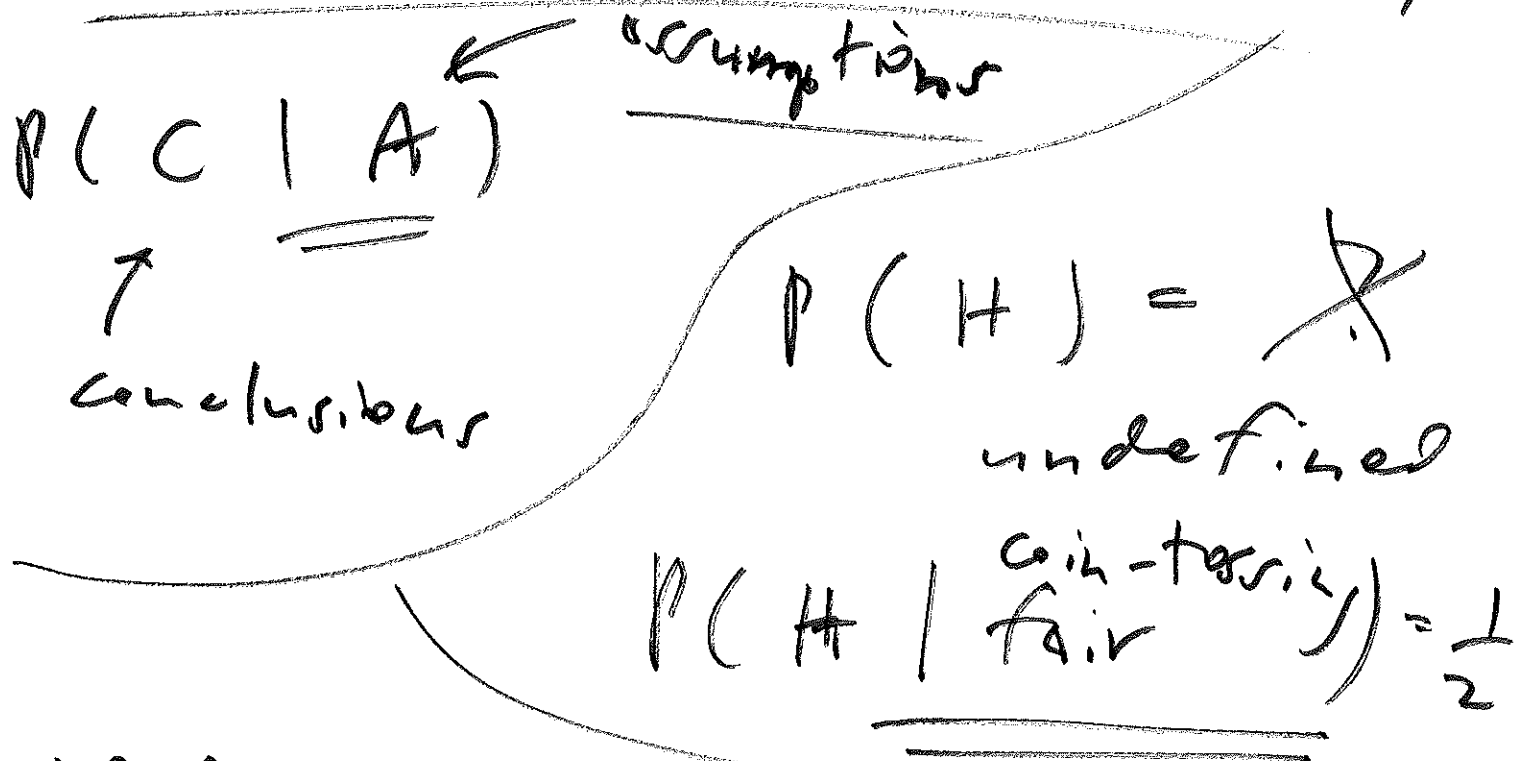 assumptions
P( C | A )
conclusions
P ( H ) = ?
undefined
coin-tossing
P( H | fair ) = 1/2